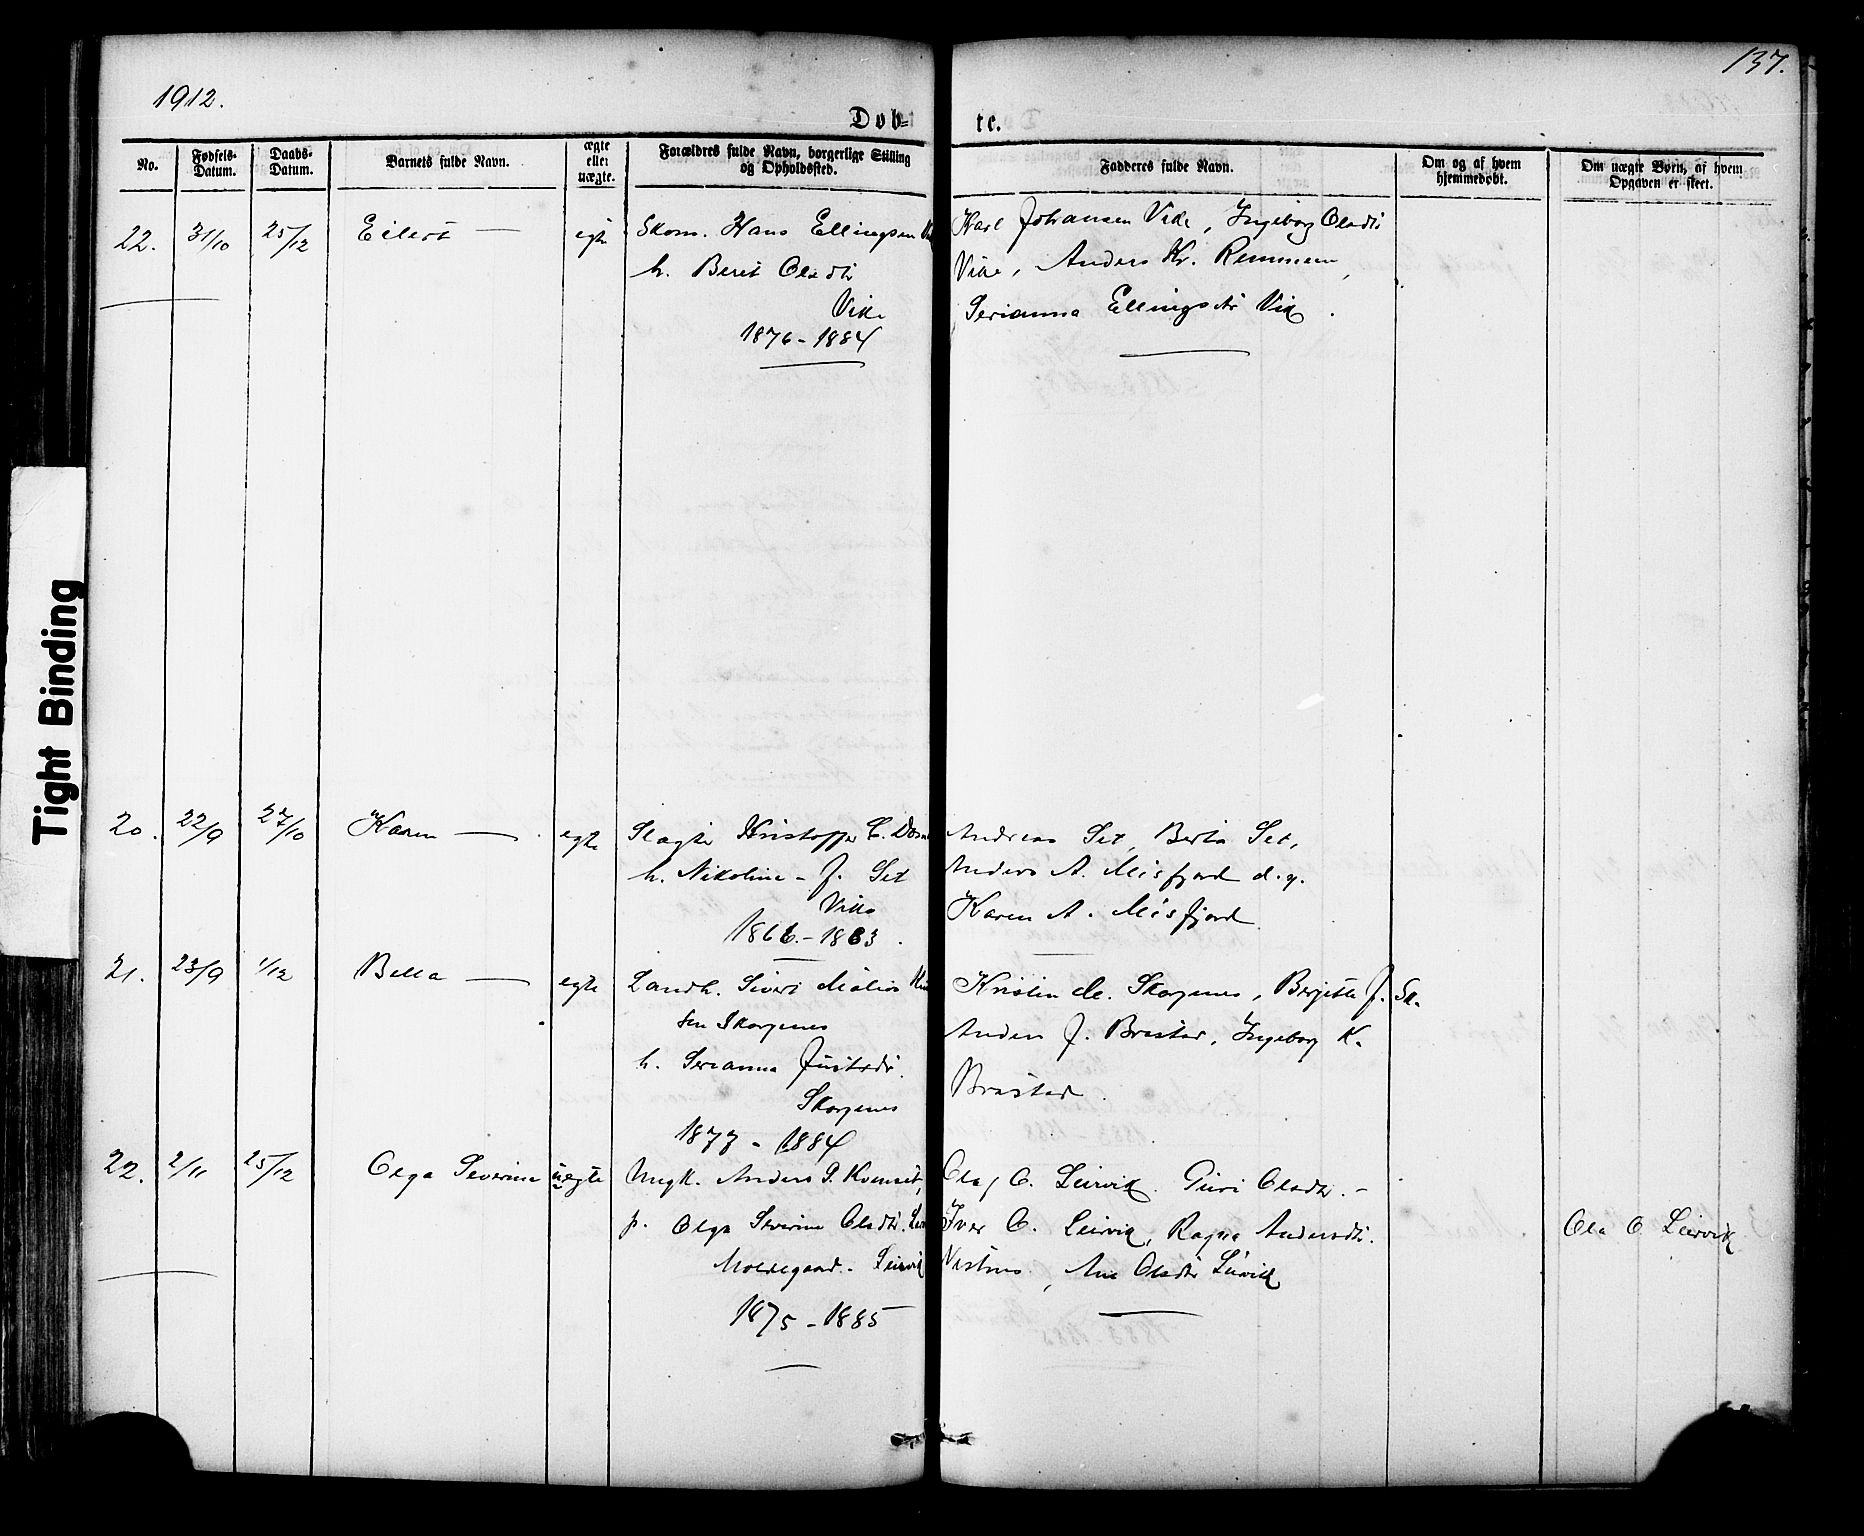 1912.
137.
Døb-
te.
No.
Fødsels-
Datum.
Daabs-
Datum.
Barnets fulde Navn.
ægte
eller
uægte.
Forældres fulde Navn, borgerlige Stilling
og Opholdssted.
Faddernes fulde Navn.
Om og af hvem
hjemmedøbt.
Om uægte Børn, af hvem
Opgaven er skeet.
22. 31/10 25/12 Eilert — egte Skom. Hans Ellingsen
h. Berit Olsdtr
Vik.
1876-1884
Karl Johansen Vike, Ingeborg Olsdtr
Vike, Anders Kr. Remmem,
Serianna Ellingsdtr Vik.
20. 22/9 27/10 Karen — egte Slagter Kristoffer C.
h. Nikoline - J. Set
Vike
1866.-1863.
Andreas Set, Berta Set,
Anders A. Misfjord d.y.
Karen A. Misfjord
21. 23/9 1/12 Bella — egte Landh. Sivert Mälius
sen Skorgenes
h. Serianna Justsdtr.
Skorgenes
1877 - 1884
Kristin M. Skorgenes, Berjitte J. Sk.
Anders J. Brastad, Ingeborg K.
Brastad.
22. 2/11 25/12 Olga Severine uegte Ungk. Anders P. Kvemset,
p. Olga Severine Olsdtr.
Moldegaard. Leirvik
1875-1885
Olaf O. Leirvik. Guri Olsdtr. -
Iver O. Leirvik, Ragna Andersdtr.
Vestnes, Ane Olsdtr Leirvik
Ola O Leirvik
Tight Binding